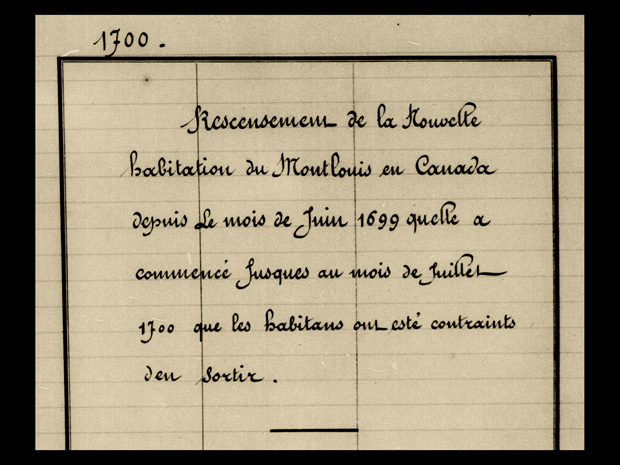 1700.
Rescensement de la Nouvelle
habitation du Montlouis en Canada
depuis Le mois de Juin 1699 quelle a
commencé Jusques au mois de Juillet
1700 que les habitans ont esté contraints
den Sortir.